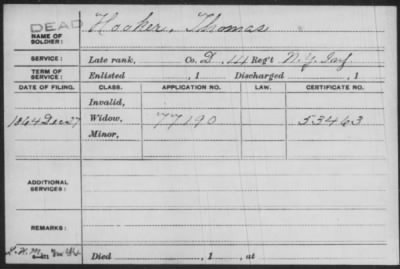 DEAD
NAME OF SOLDIER: Hooker, Thomas
SERVICE: Late rank, Co. D, 14 Reg't N.Y. Inf.
TERM OF SERVICE: Enlisted , 1 Discharged , 1
DATE OF FILING. CLASS. APPLICATION NO. LAW. CERTIFICATE NO.
Invalid,
1864 Dec 27 Widow, 77190 53463
Minor,
ADDITIONAL SERVICES:
REMARKS:
Died , 1 , at